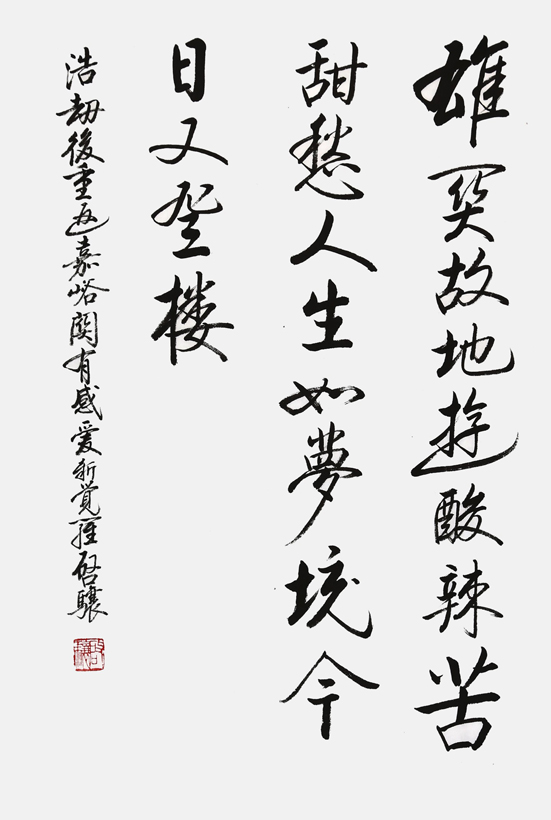 雄関故地遊酸辣苦
甜愁人生如夢境今
日又登楼
浩劫後重返嘉峪関有感爱新觉羅啓驤